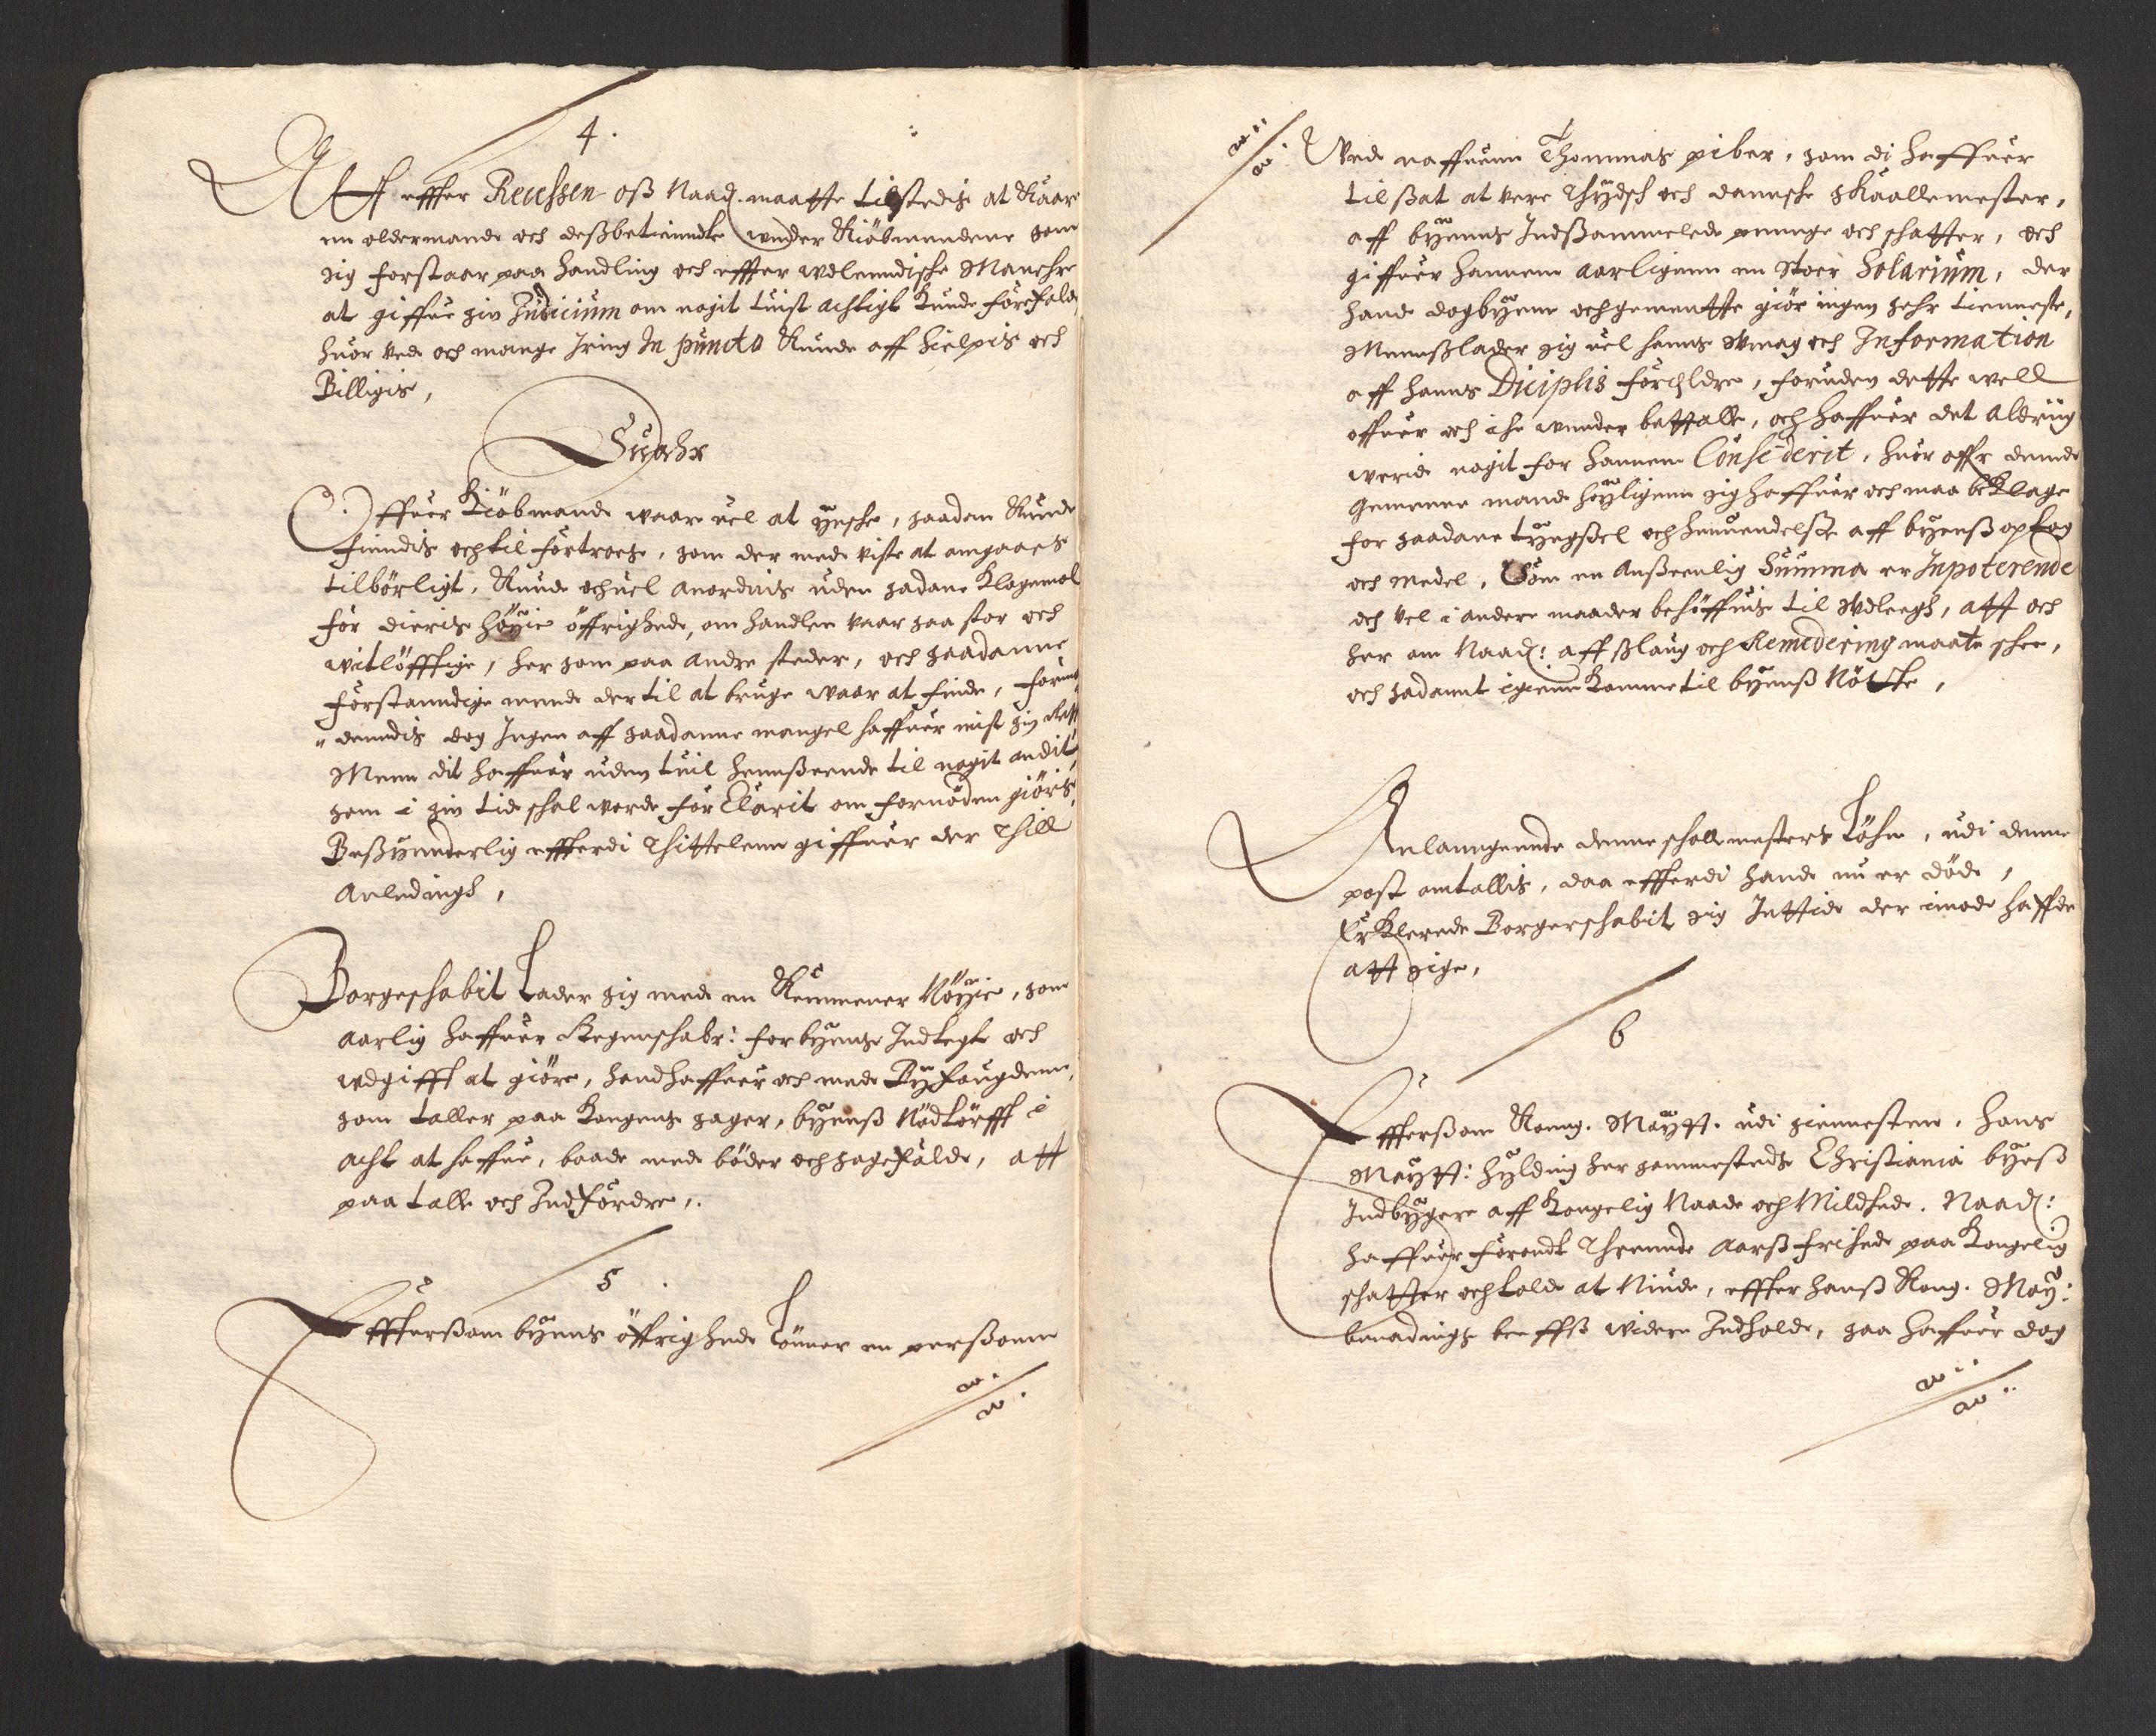 4.
Att effter Recessen oß Naad. maatte tilstedis at Kaare
en oldermand och deßbetiendte under Kiöbmendene som
sig forstaar paa handling och effter wdlendische Manehre
at giffue sin Judicium om nogit tuist achtigt kunde forefalde,
huor ved och mange Iring In puncto Kunde aff hielpis och
Billigis,
Suahr
Offuer Kiöbmand waare vel at ynsche, saadan Kunde
findis och til förtroes, som der med viste at omgaaes
tilbörligt, Kunde och vel anordnis uden sadane Klagemal
för dieris höyie öffrighed, om handlen vaar saa stor och
witlöfftige, her som paa andre steder, och saadanne
förstanndige mend der til at bruge waar at finde,
dendis dog Ingen aff saadanne mangel haffuer mist sin
Menn dit haffuer uden tuil hennseende til nogit andit
som i sin tid schal worde för Clarit om fornöden giöris,
Besynderlig effterdi Thittelenn giffuer der Thill
Anledingh,
Borgeschabit Lader sig med en Kemmener Nöyie, som
aarlig haffuer Regenschabr: for byens Indtegt och
wdgifft at giöre, hand haffuer och med Byfougdenn,
som taller paa Kongens sager, byenß Nödtörfft i
acht at haffue, baade med böder och sagefalde, att
paa talle och Indfördre,.
5.
Effterßom byens öffrighed Lönner en perßonn
a.
a.
a..
a.
Ved naffnenn Thommas piber, som di haffuer
tilßat at vere Thydsch och dannsche skaallemester,
aff byenns Indßammelede penge och schatter, och
giffuer hannem aarligenn en stoer Solarium, der
hand dog byenn och gementtte giör ingen sehr tienneste,
Mennß lader sig vel hans Umag och Information
aff hanns Diciplis förelldre, foruden dette well
offuer och ehr wnnder bettalle, och haffuer det aldrug
werid nogit for hannem Consederit, huor offr dennd
Gemenee mand höyligenn sig haffuer och maa beklage
for saadane tyngßel och henuendelße aff byenß opLag
och medel, Som en Anßeenlig Summa er Inpoterende
och vel i andere maader behöffuis til Udleegh, att och
her om Naad: aff ßlaug och Remedering maate schee,
och sadannt igienn komme til byenß Nötte,
Anlanngennde denne scholl mesters Löhn, udi denne
post omtallis, daa effterdi hand nu er död,
Erklerede Borgerschabit sig Inttid der imod haffde
att sige,
6
Effterßom Konng. Maytt. udi siennesten, Hans
Maytt: hylding her sammesteds Christiania byeß
Indbygere aff Kongelig Naade och Mildhed. Naad:
haffuer förundt Threnndе Aarß frihed paa Kongelig
schatter och told at Niude, effter hanß Kong. May:
benadings breffß widere Indhold, saa haffuer dog
a..
a..